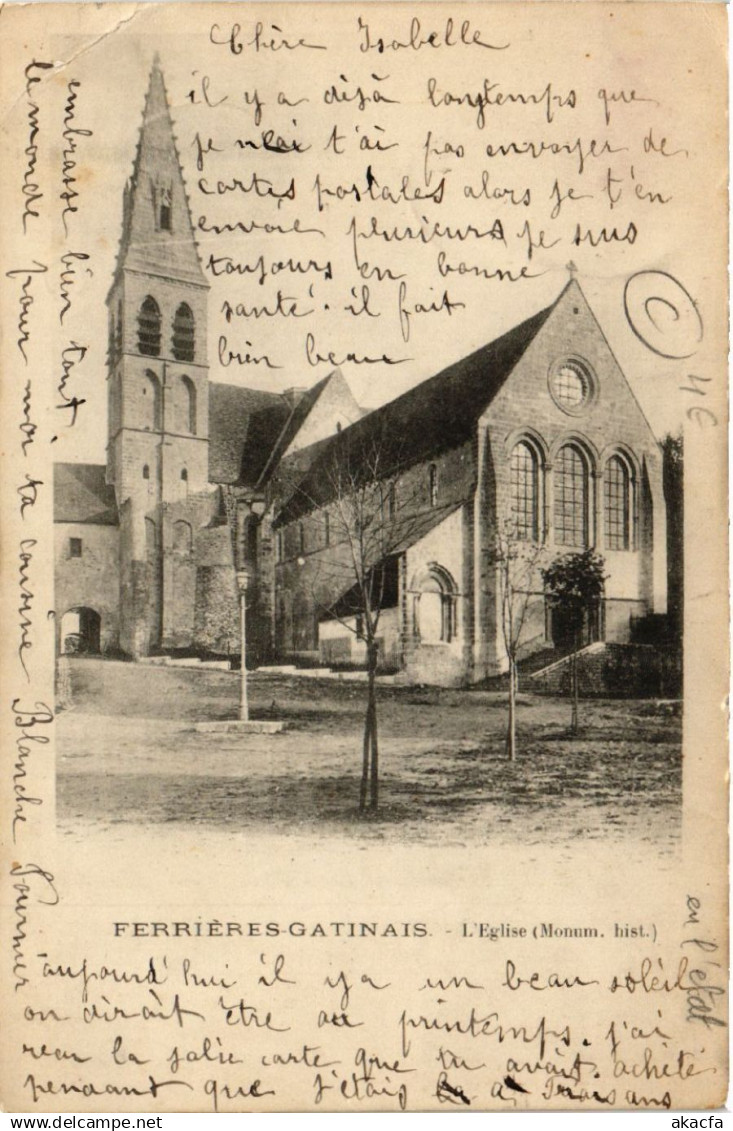 Chère Isabelle
il y a déjà longtemps que
je n'ai t'ai pas envoyer de
cartes postales alors je t'en
envoie plusieurs je suis
toujours en bonne
santé. il fait
bien beau
4€
FERRIÈRES-GATINAIS. - L'Eglise (Monum. hist.)
en l'etat
aujourd'hui il y a un beau soleil
on dirait être au printemps. j'ai
recu la jolie carte que tu avait achêté
pendant que j'étais a
embrasse bien tant
le monde pour moi ta cousine Blanche Fournier
akacfa